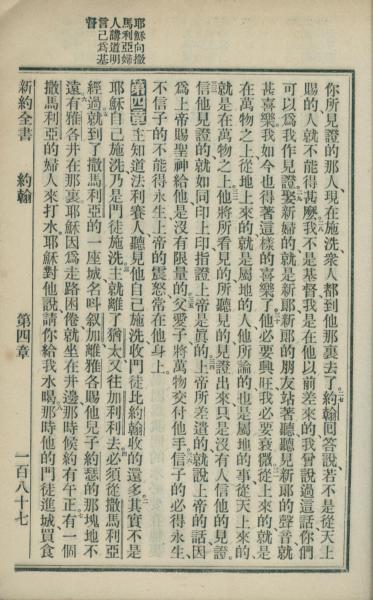 你所見證的那人、現在施洗、衆人都到他那裏去了、約翰回答說、若不是從天上
賜的人就不能得甚麽、我不是基督、我是在他以前差來的、我曾說過這話、你們
可以爲我作見證、娶新婦的就是新郎、新郎的朋友站著、聽聽見新郎的聲音、就
甚喜樂、我如今也得著這樣的喜樂了、他必要興旺、我必要衰微、從上來的、就是
在萬物之上、從地上來的、就是屬地的人、他所論的、也是屬地的事、從天上來的、
就是在萬物之上、他將所看見的所聽見的、見證出來、只是沒有人信他的見證、
信他見證的、就如同印上印、指證上帝是眞的、上帝所差遣的、就說上帝的話、因
爲上帝賜聖神給他、是沒有限量的、父愛子、將萬物交付他手、信子的必得永生、
不信子的不能得永生、上帝的震怒常在他身上、
耶穌向撒
馬利亞婦
人講道明
言己爲基
督
第四章 主知道法利賽人聽見他自己施洗、收門徒、比約翰收的還多、其實不是
耶穌自己施洗、乃是門徒施洗、主就離了猶太、又往加利利去、必須從撒馬利亞
經過、就到了撒馬利亞的一座城、名呌叙加、離雅各賜他兒子約瑟的那塊地不
遠、有雅各井在那裏、耶穌因爲走路困倦、就坐在井邊、那時候約有午正、有一個
撒馬利亞的婦人來打水、耶穌對他說、請你給我水喝、那時他的門徒進城買食
新約全書 約翰 第四章 一百八十七